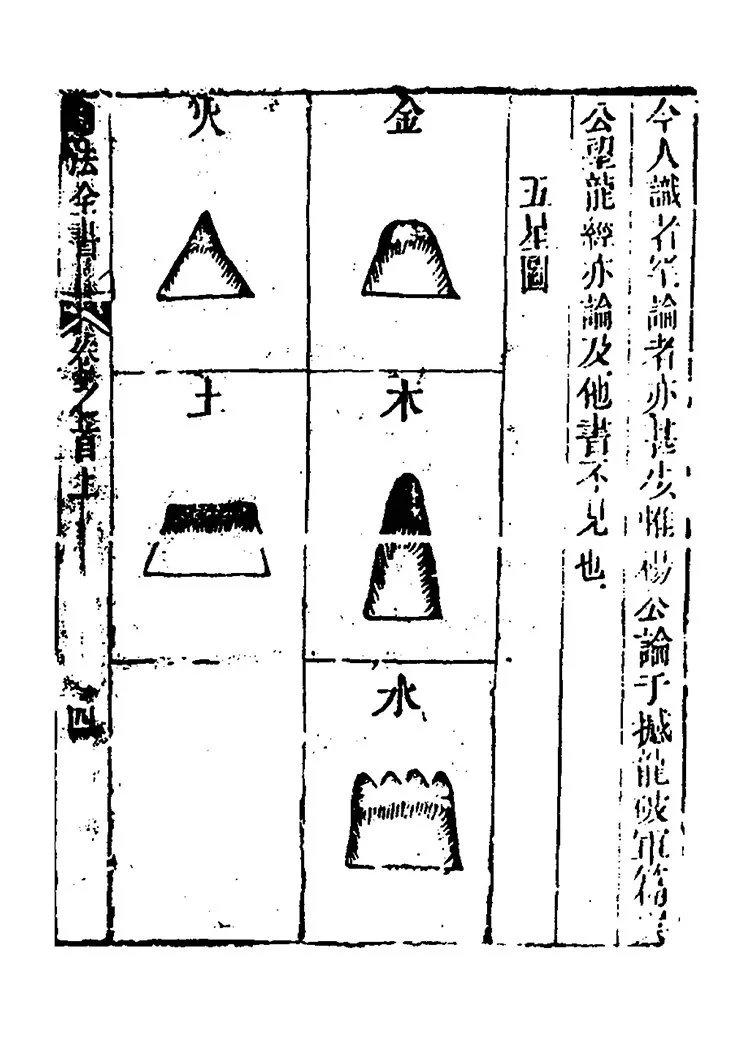 今人識者罕論者亦甚少惟楊公論于撼龍破軍篇
公望龍經亦論及他書不見也
五星圖
金
木
水
火
土
法全書 卷之首上 四